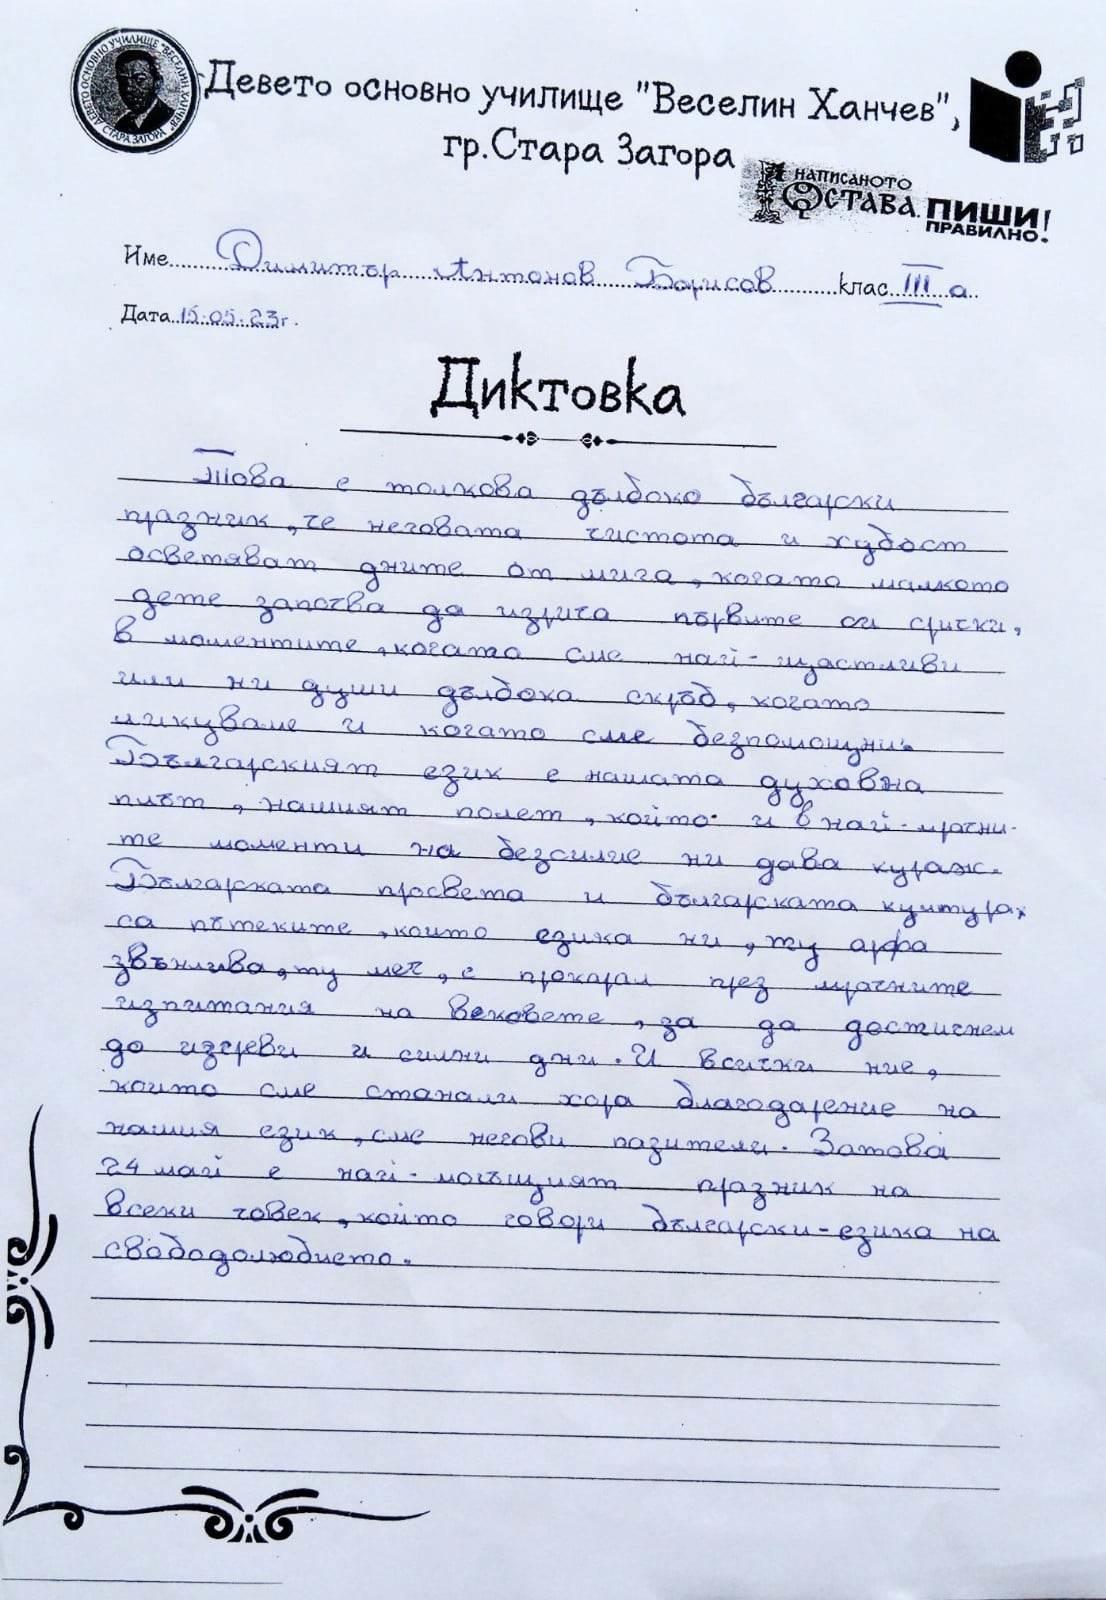 ДЕВЕТО ОСНОВНО УЧИЛИЩЕ "ВЕСЕЛИН ХАНЧЕВ" СТАРА ЗАГОРА
Девето основно училище "Веселин Ханчев",
гр.Стара Загора
НАПИСАНОТО
ОСТАВА. ПИШИ
ПРАВИЛНО!
Име Димитър Антонов Борисов клас III а
Дата 15.05.23г.
Диктовка
Това е толкова дълбоко български
празник, че неговата чистота и хубост
осветяват дните от мига, когато малкото
дете започва да изрича първите си срички,
в моментите, когато сме най-щастливи
или ни души дълбока скръб, когато
ликуваме и когато сме безпомощни.
Българският език е нашата духовна
плът, нашият полет, който и в най-мрачни-
те моменти на безсилие ни дава кураж.
Българската просвета и българската култура
са пътеките, които езика ни, ту арфа
звънлива, ту меч, е прокарал през мрачните
изпитания на вековете, за да достигнем
до изгреви и силни дни. И всички ние,
които сме станали хора благодарение на
нашия език, сме негови пазители. Затова
24 май е най-могъщият празник на
всеки човек, който говори български-езика на
свободолюбието.